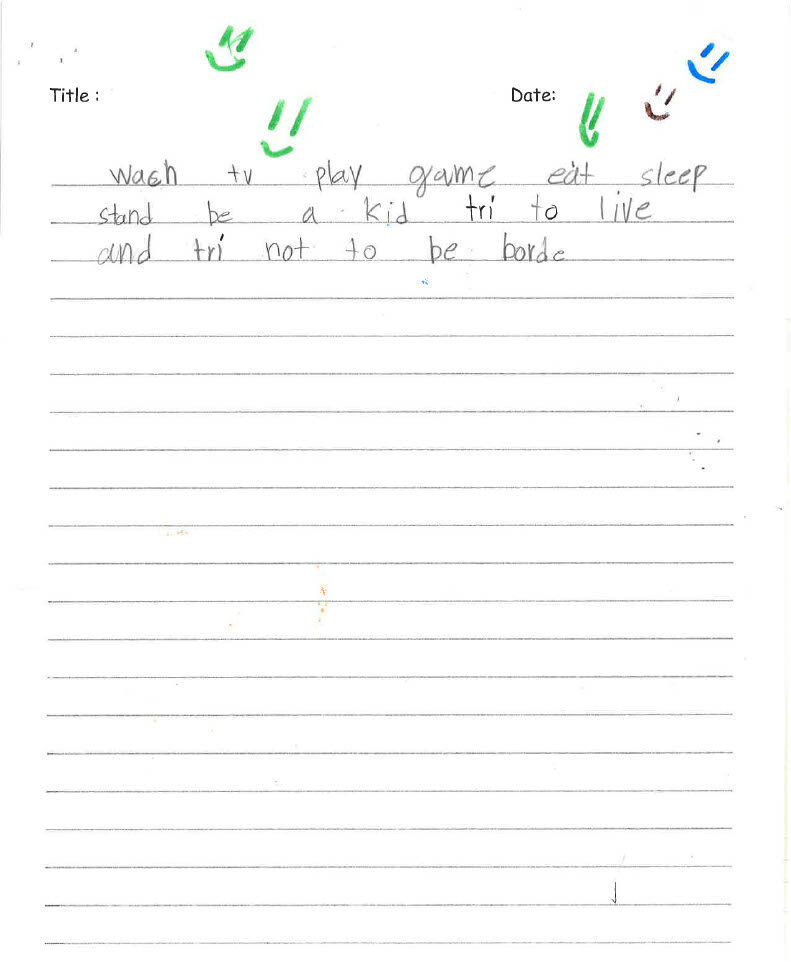 Title : Date:
wach tv play game eat sleep
stand be a kid tri to live
and tri not to be borde